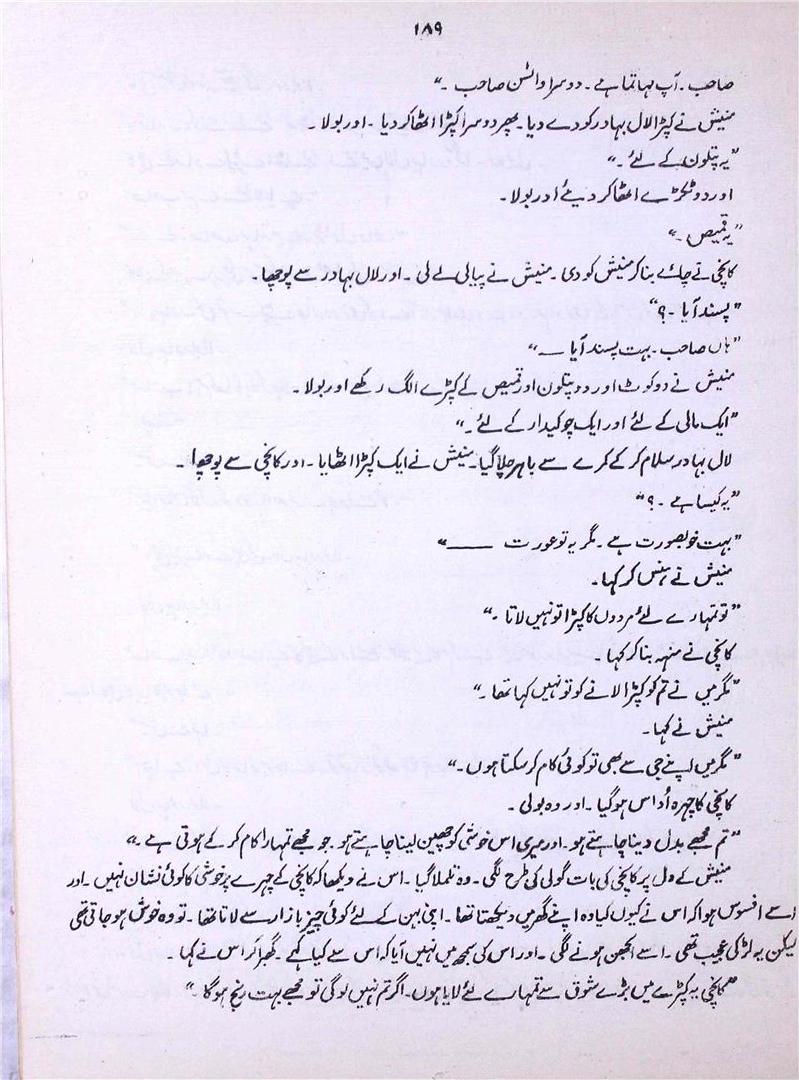 ۱۸۹
صاحب ۔ آپ مہاتما ہے ۔ دوسرا واٹسن صاحب ۔“
منیش نے کپڑا لال بہادر کو دے دیا ۔ پھر دوسرا کپڑا اٹھا کر دیا ۔ اور بولا ۔
”یہ پتلون کے لئے ۔“
اور دو ٹکڑے اٹھا کر دیئے اور بولا ۔
”یہ قمیص ۔“
کانچی نے چائے بنا کر منیش کو دی ۔ منیش نے پیالی لے لی ۔ اور لال بہادر سے پوچھا ۔
”پسند آیا ۔ ؟“
”ہاں صاحب ۔ بہت پسند آیا ــــ “
منیش نے دو کوٹ اور دو پتلون اور قمیص کے کپڑے الگ رکھے اور بولا ۔
”ایک مالی کے لئے اور ایک چوکیدار کے لئے ۔“
لال بہادر سلام کر کے کمرے سے باہر چلا گیا ۔ منیش نے ایک کپڑا اٹھایا ۔ اور کانچی سے پوچھا ۔
”یہ کیسا ہے ۔ ؟“
”بہت خوبصورت ہے ۔ مگر یہ تو عورت ــــــ “
منیش نے ہنس کر کہا ۔
”تو تمہارے لئے مردوں کا کپڑا تو نہیں لاتا ۔“
کانچی نے منہہ بنا کر کہا ۔
”مگر میں نے تم کو کپڑا لانے کو تو نہیں کہا تھا ۔“
منیش نے کہا ۔
”مگر میں اپنے جی سے بھی تو کوئی کام کر سکتا ہوں ۔“
کانچی کا چہرہ اُداس ہو گیا ۔ اور وہ بولی ۔
”تم مجھے بدل دینا چاہتے ہو ۔ اور میری اس خوشی کو چھین لینا چاہتے ہو ۔ جو مجھے تمہارا کام کر کے ہوتی ہے ۔“
منیش کے دل پر کانچی کی بات گولی کی طرح لگی ۔ وہ تلملا گیا ۔ اس نے دیکھا کہ کانچی کے چہرے پر خوشی کا کوئی نشان نہیں ۔ اور
اسے افسوس ہوا کہ اس نے کیوں کیا وہ اپنے گھر میں دیکھتا تھا ۔ اپنی بہن کے لئے کوئی چیز بازار سے لاتا تھا ۔ تو وہ خوش ہو جاتی تھی
لیکن یہ لڑکی عجیب تھی ۔ اسے الجھن ہونے لگی ۔ اور اس کی سمجھ میں نہیں آیا کہ اس سے کیا کہے ۔ گھبرا کر اس نے کہا ۔
”کانچی یہ کپڑے میں بڑے شوق سے تمہارے لئے لایا ہوں ۔ اگر تم نہیں لو گی تو مجھے بہت رنج ہو گا ۔“